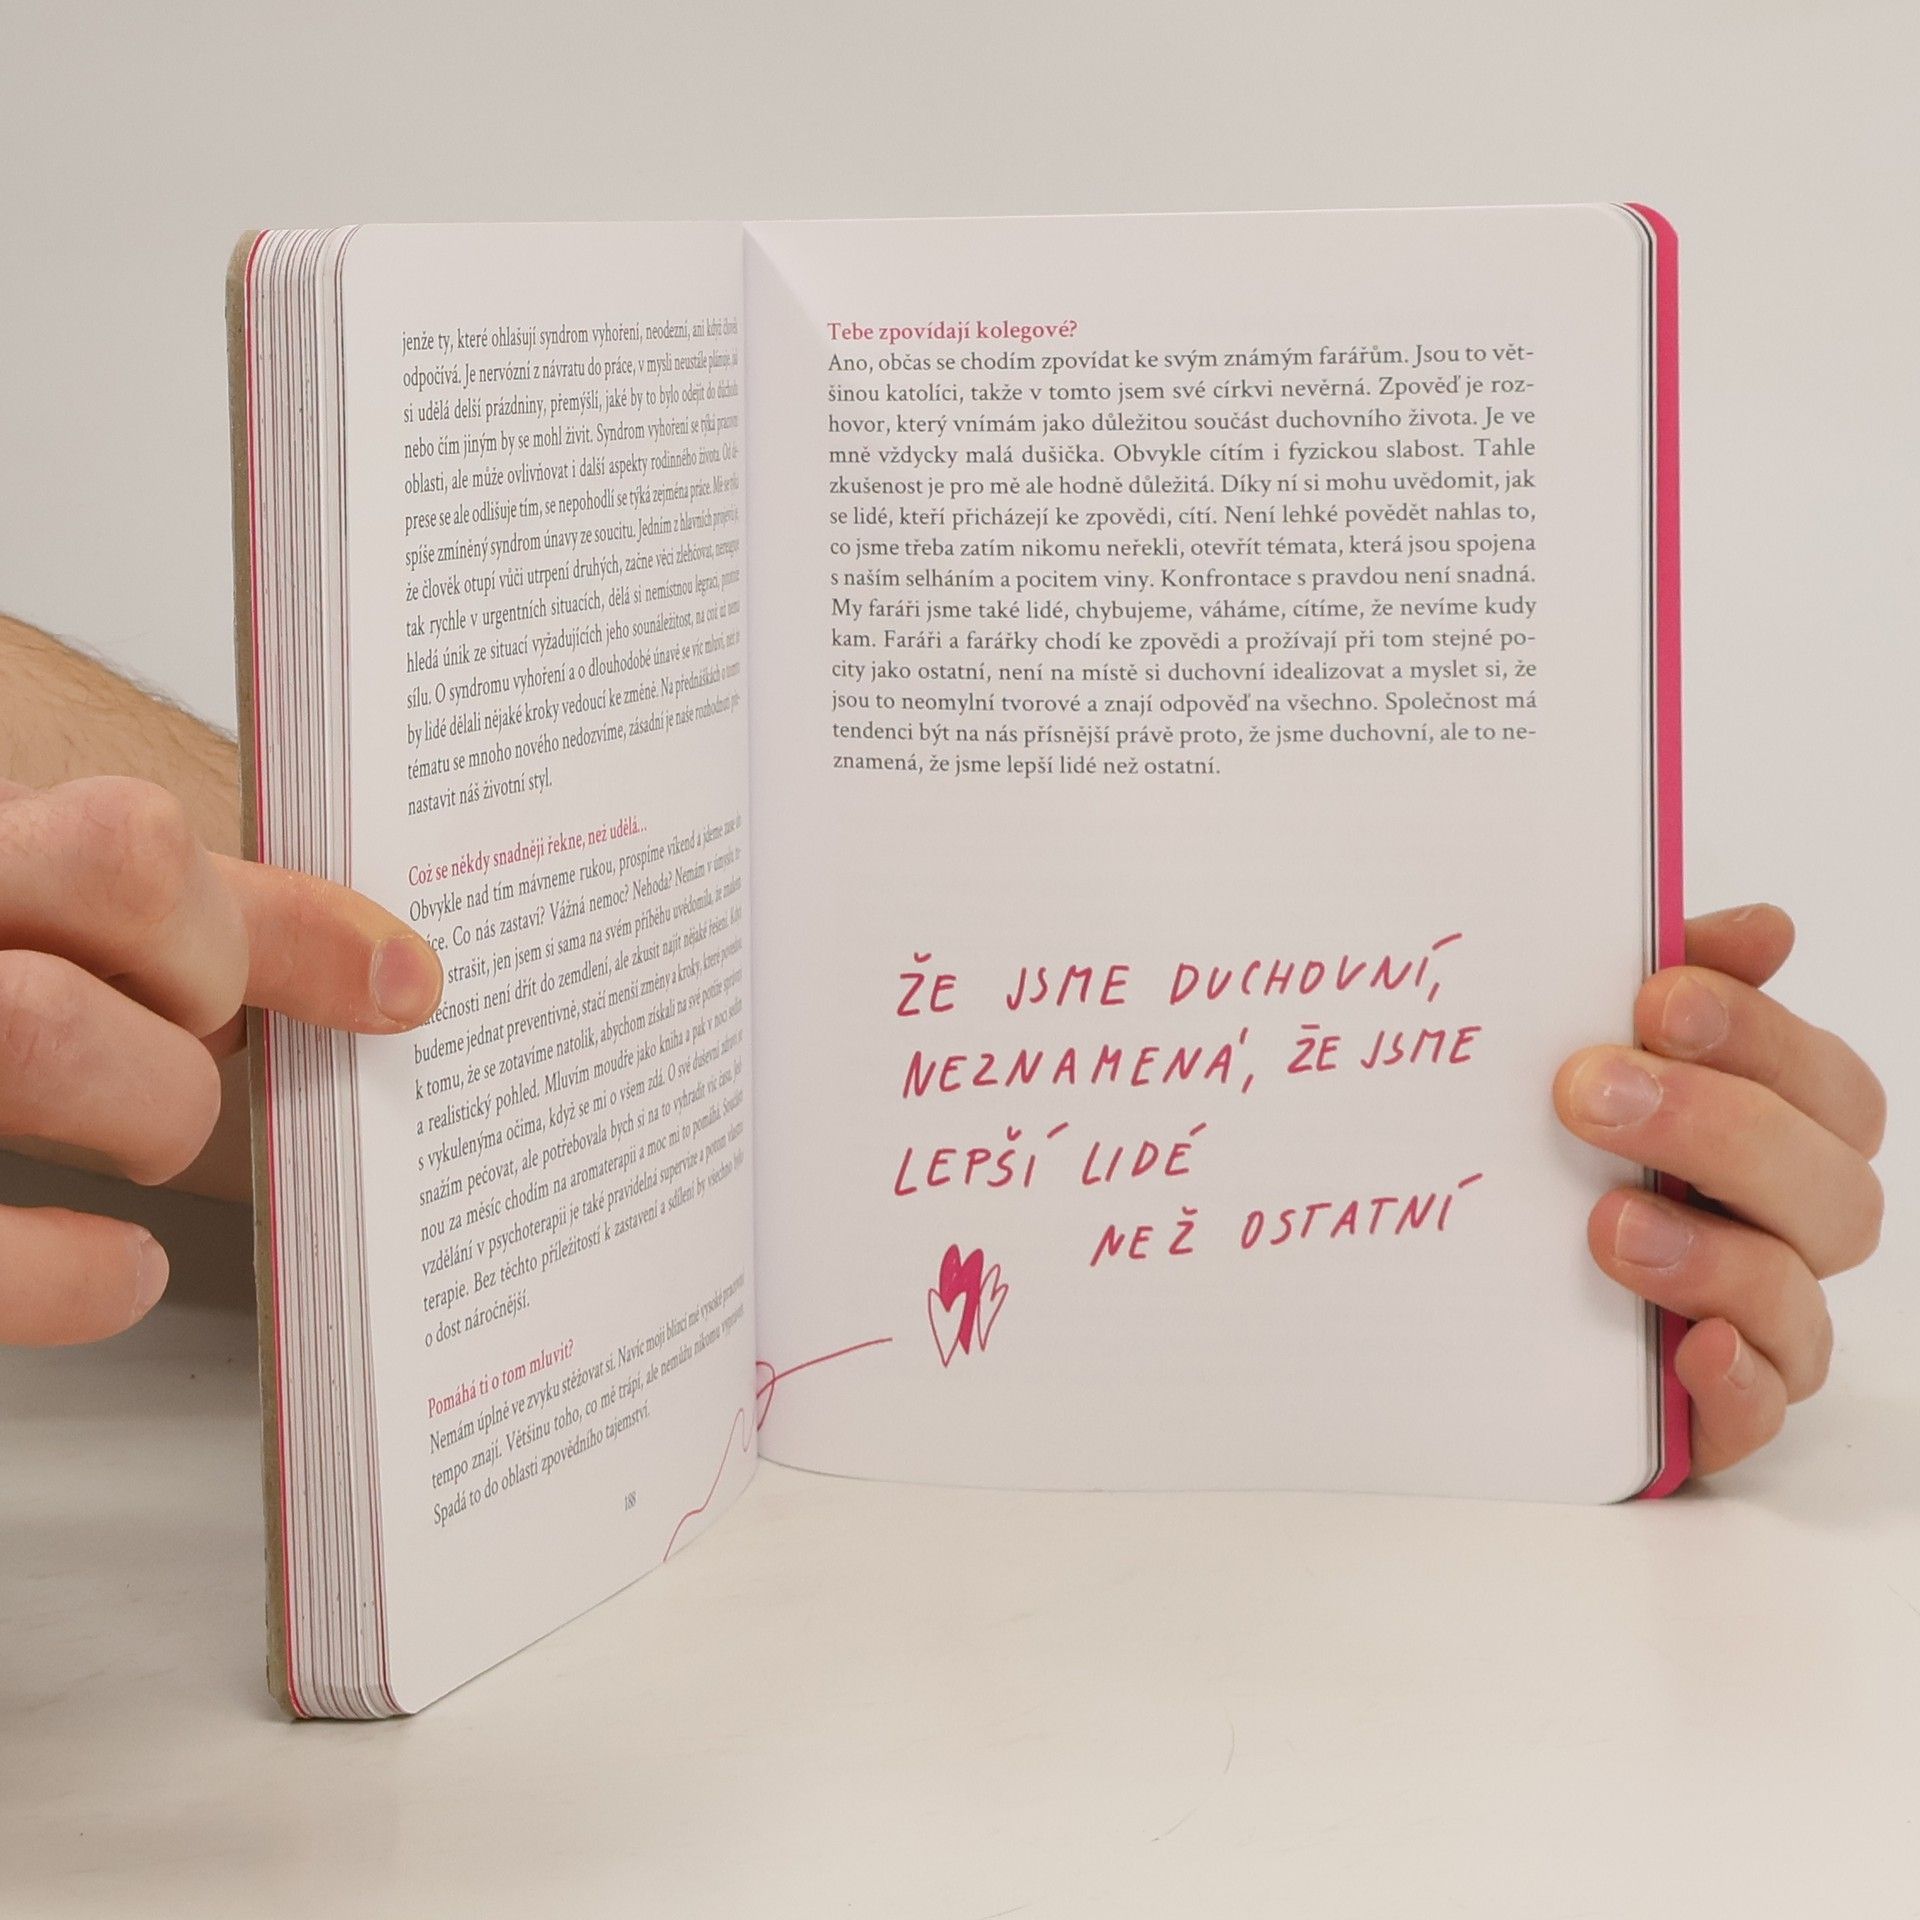 jenže ty, které ohlašují syndrom vyhoření, neodezní, ani když člověk
odpočívá. Je nervózní z návratu do práce, v mysli neustále plánuje,
si udělá delší prázdniny, přemýšlí, jaké by to bylo odejít do důchodu
nebo čím jiným by se mohl živit. Syndrom vyhoření se týká pracovní
oblasti, ale může ovlivňovat i další aspekty rodinného života. Od de-
prese se ale odlišuje tím, se nepohodlí se týká zejména práce. Mě se týká
spíše zmíněný syndrom únavy ze soucitu. Jedním z hlavních projevů je,
že člověk otupí vůči utrpení druhých, začne věci zlehčovat, nereaguje
tak rychle v urgentních situacích, dělá si nemístnou legraci, protože
hledá únik ze situací vyžadujících jeho sounáležitost, na což už nemá
sílu. O syndromu vyhoření a o dlouhodobé únavě se víc mluví, než
by lidé dělali nějaké kroky vedoucí ke změně. Na přednáškách o tomto
tématu se mnoho nového nedozvíme, zásadní je naše rozhodnutí pře-
nastavit náš životní styl.
Což se někdy snadněji řekne, než udělá...
Obvykle nad tím mávneme rukou, prospíme víkend a jdeme zase do
Co nás zastaví? Vážná nemoc? Nehoda? Nemám v úmyslu
strašit, jen jsem si sama na svém příběhu uvědomila, že znakem
není dřít do zemdlení, ale zkusit najít nějaké řešení. Když
budeme jednat preventivně, stačí menší změny a kroky, které povedou
k tomu, že se zotavíme natolik, abychom získali na své potíže správný
a realistický pohled. Mluvím moudře jako kniha a pak v noci sedím
s vykulenýma očima, když se mi o všem zdá. O své duševní zdraví se
snažím pečovat, ale potřebovala bych si na to vyhradit víc času. Jed-
nou za měsíc chodím na aromaterapii a moc mi to pomáhá. Součástí
vzdělání v psychoterapii je také pravidelná supervize a potom vlastní
terapie. Bez těchto příležitostí k zastavení a sdílení by všechno bylo
o dost náročnější.
Pomáhá ti o tom mluvit?
Nemám úplně ve zvyku stěžovat si. Navíc moji blízcí mé vysoké pracovní
tempo znají. Většinu toho, co mě trápí, ale nemůžu nikomu vyprávět.
Spadá to do oblasti zpovědního tajemství.
188
Tebe zpovídají kolegové?
Ano, občas se chodím zpovídat ke svým známým farářům. Jsou to vět-
šinou katolíci, takže v tomto jsem své církvi nevěrná. Zpověď je roz-
hovor, který vnímám jako důležitou součást duchovního života. Je ve
mně vždycky malá dušička. Obvykle cítím i fyzickou slabost. Tahle
zkušenost je pro mě ale hodně důležitá. Díky ní si mohu uvědomit, jak
se lidé, kteří přicházejí ke zpovědi, cítí. Není lehké povědět nahlas to,
co jsme třeba zatím nikomu neřekli, otevřít témata, která jsou spojena
s naším selháním a pocitem viny. Konfrontace s pravdou není snadná.
My faráři jsme také lidé, chybujeme, váháme, cítíme, že nevíme kudy
kam. Faráři a farářky chodí ke zpovědi a prožívají při tom stejné po-
city jako ostatní, není na místě si duchovní idealizovat a myslet si, že
jsou to neomylní tvorové a znají odpověď na všechno. Společnost má
tendenci být na nás přísnější právě proto, že jsme duchovní, ale to ne-
znamená, že jsme lepší lidé než ostatní.
ŽE JSME DUCHOVNÍ,
NEZNAMENÁ, ŽE JSME
LEPŠÍ LIDÉ
NEŽ OSTATNÍ